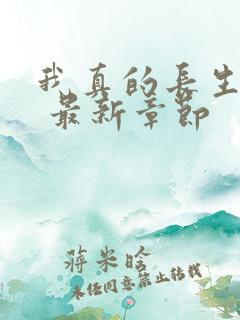 我真的長生
最新章節
蔣米晗
未任同意禁止转载